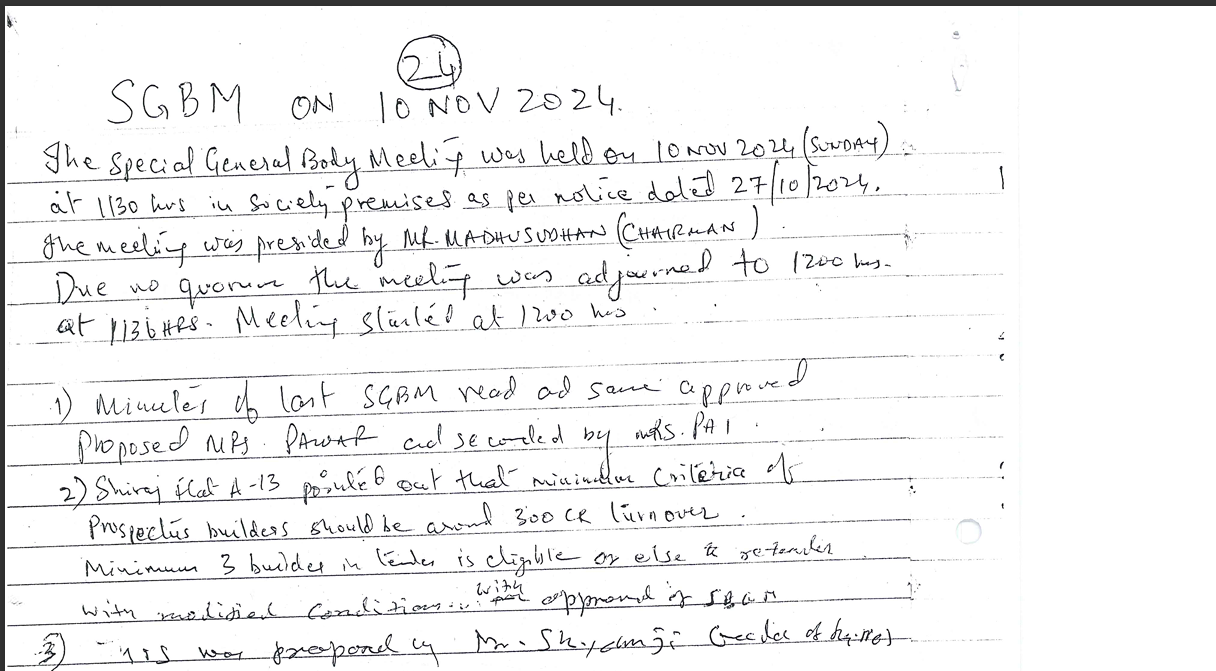 24
SGBM ON 10 NOV 2024.
The Special General Body Meeting was held on 10 NOV 2024 (SUNDAY)
at 1130 hrs in Society premises as per notice dated 27/10/2024.
The meeting was presided by MR. MADHUSUDHAN (CHAIRMAN)
Due no quorum the meeting was adjourned to 1200 hrs.
at 1136 HRS. Meeting started at 1200 hrs.
1) Minutes of last SGBM read ad same approved
Proposed MRS. PAWAR ad seconded by MRS. PAI.
2) Shiraj flat A-13 pointed out that minimum Criteria of
Prospectus builders should be around 300 CR turnover.
Minimum 3 builder in tender is eligible or else to retender
with modified Conditions... with approval of SBGM
3) was proposed by Mr.